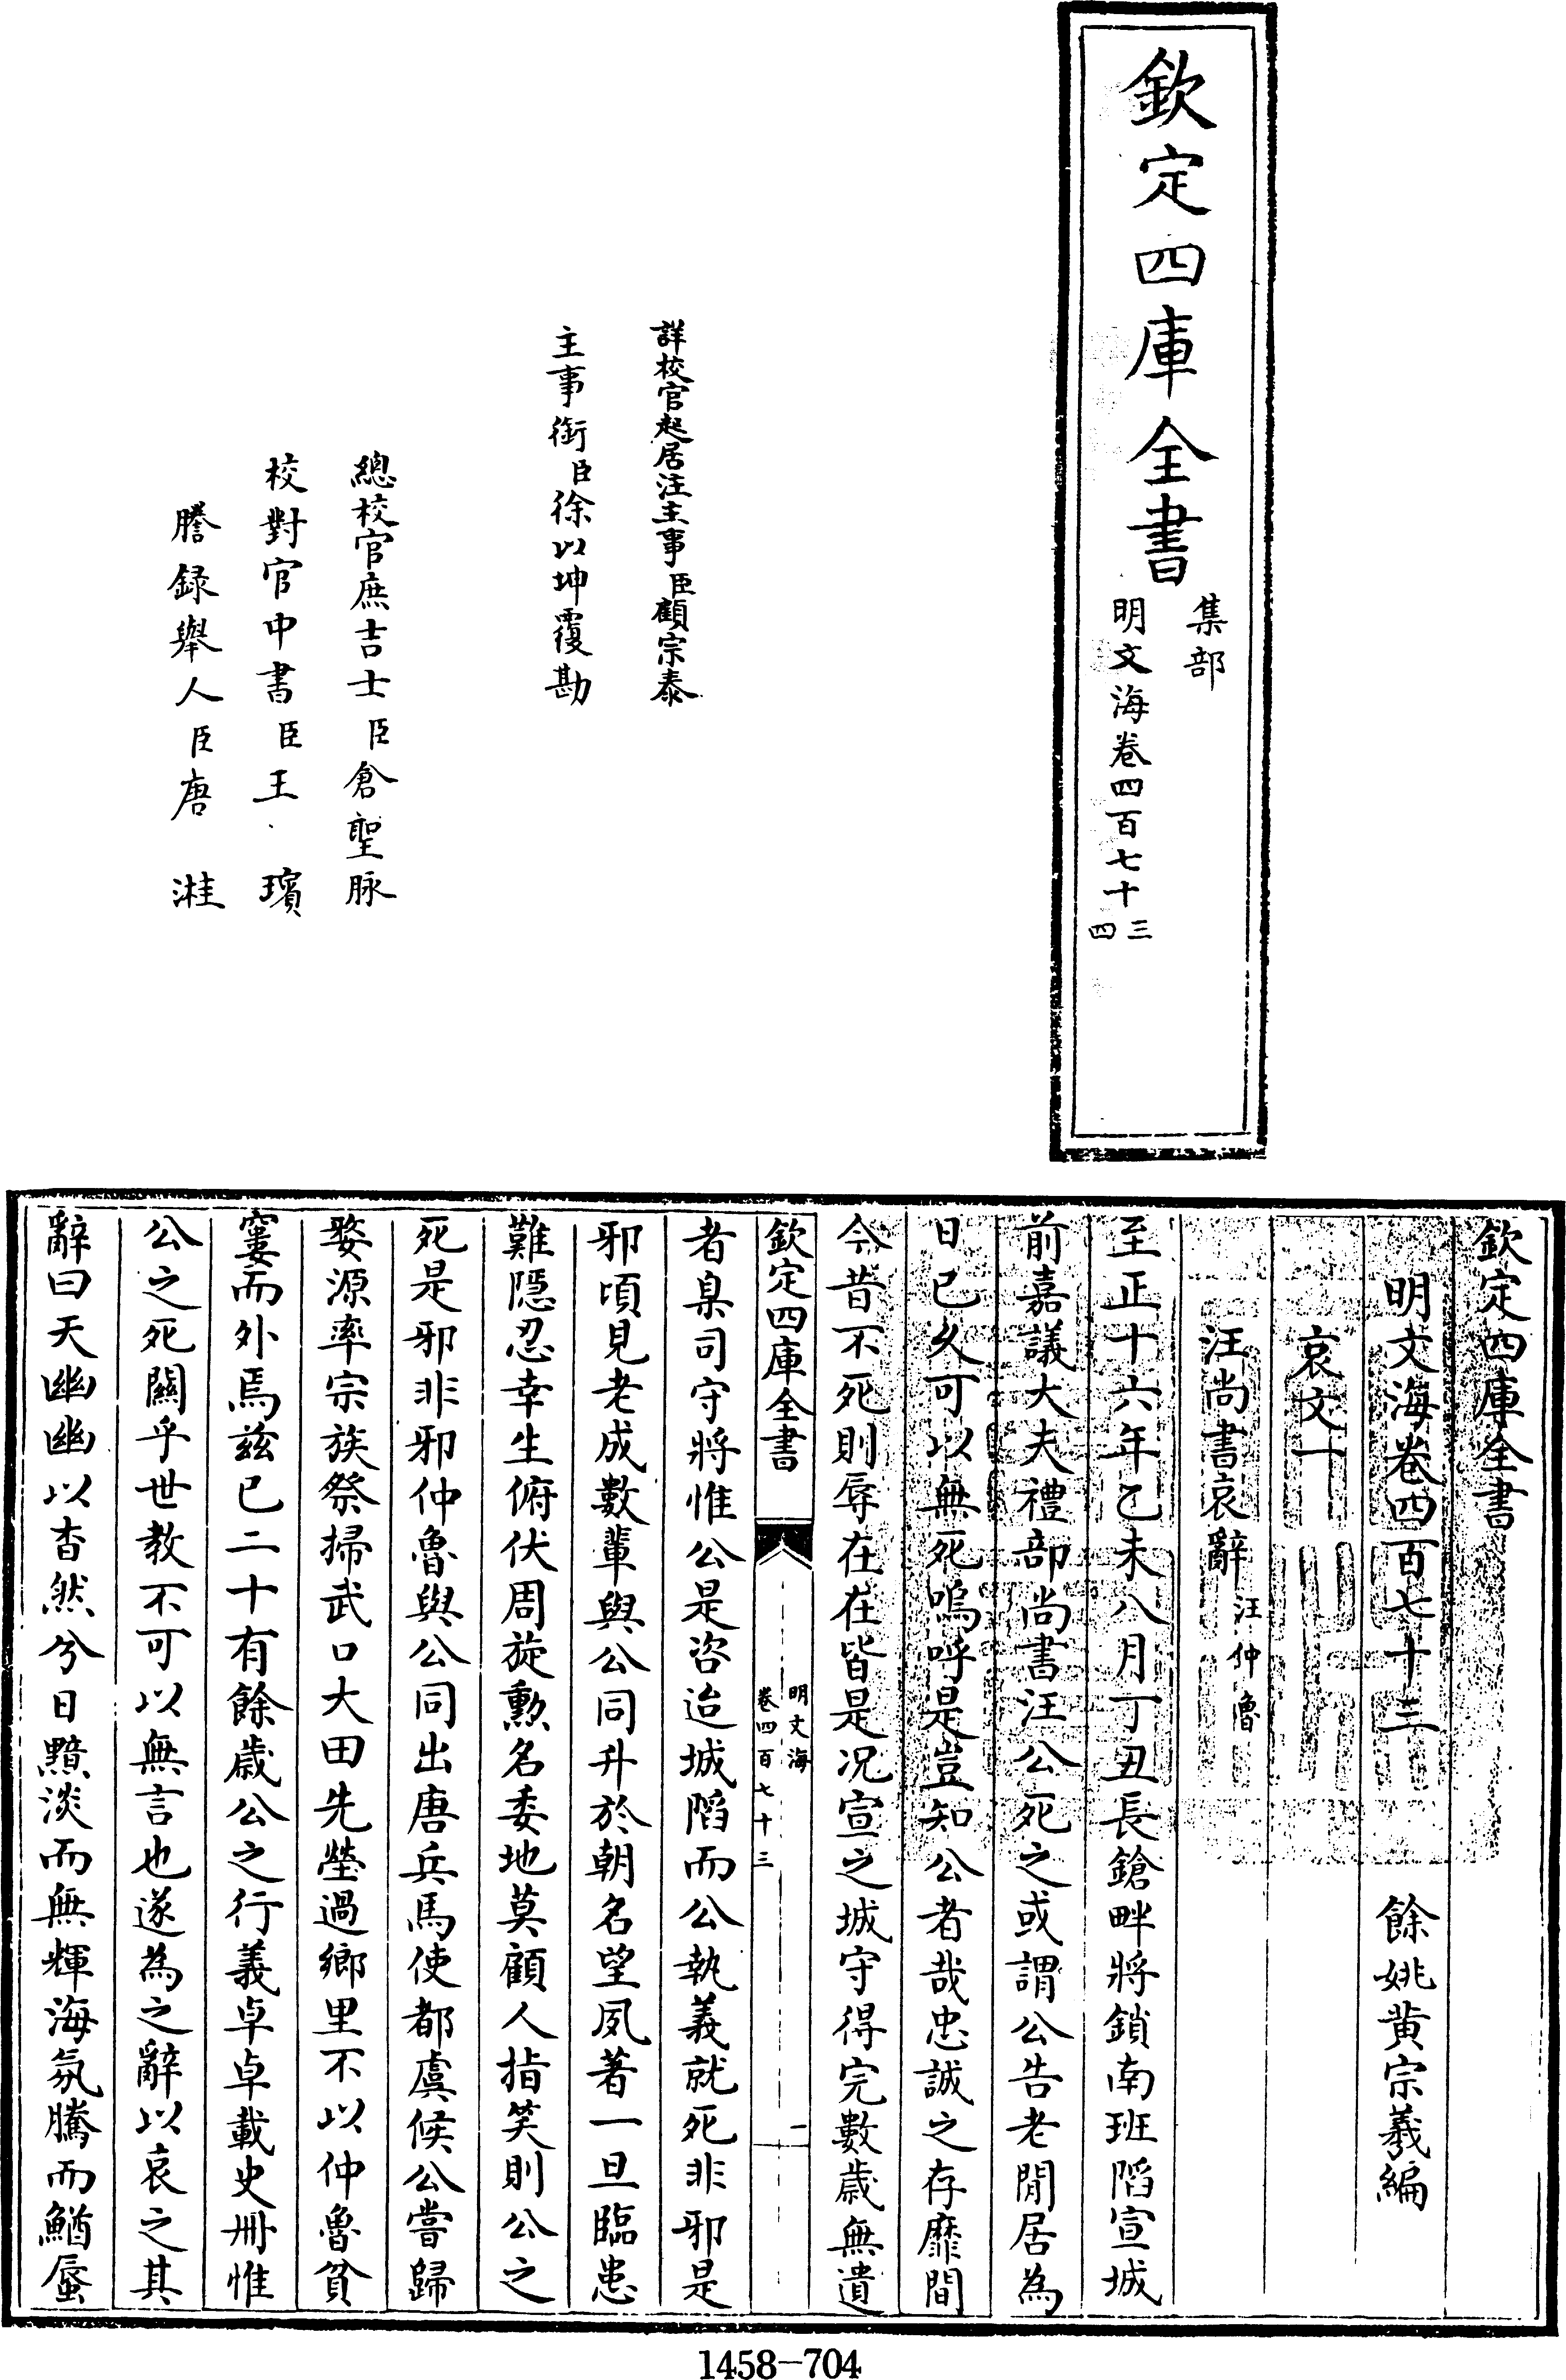 欽定四庫全書
集部
明文海卷四百七十三
四
詳校官起居注主事臣顧宗泰
主事銜臣徐以坤覆勘
總校官庶吉士臣倉聖脉
校對官中書臣王瑸
謄録舉人臣唐溎
欽定四庫全書
明文海卷四百七十三
餘姚黄宗羲編
哀文一
汪尚書哀辭汪仲魯
至正十六年乙未八月丁丑長鎗畔將鎖南班䧟宣城
前嘉議大夫禮部尚書汪公死之或謂公告老閒居為
日已久可以無死嗚呼是豈知公者哉忠誠之存靡間
今昔不死則辱在在皆是况宣之城守得完數歲無遺
欽定四庫全書
明文海
卷四百七十三
一
者臬司守將惟公是咨迨城䧟而公執義就死非邪是
邪頃見老成數輩與公同升於朝名望夙著一旦臨患
難隱忍幸生俯伏周旋勲名委地莫顧人指笑則公之
死是邪非邪仲魯與公同出唐兵馬使都虞候公嘗歸
婺源率宗族祭掃武口大田先塋過鄉里不以仲魯貧
窶而外焉兹已二十有餘歲公之行義卓卓載史册惟
公之死闗乎世教不可以無言也遂為之辭以哀之其
辭曰天幽幽以杳然兮日黯淡而無輝海氛騰而鰌蜃
1458-704